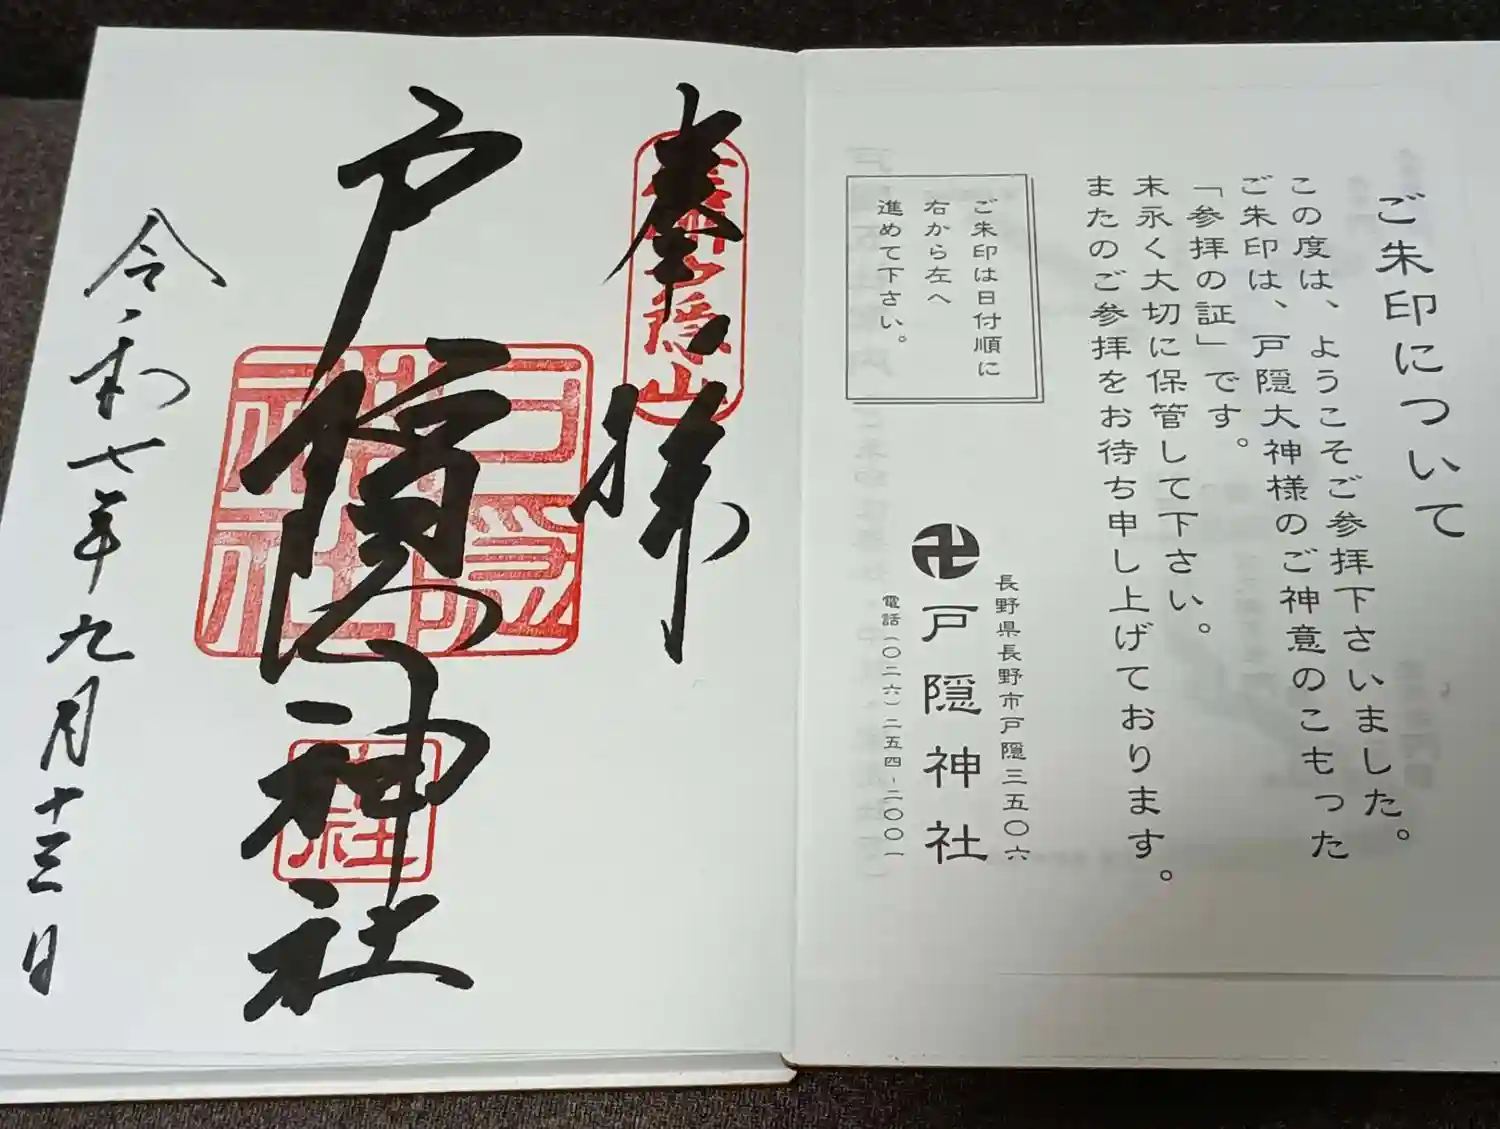 ご朱印について
この度は、ようこそご参拝下さいました。
ご朱印は、戸隠大神様のご神意のこもった
「参拝の証」です。
末永く大切に保管して下さい。
またのご参拝をお待ち申し上げております。
ご朱印は日付順に
右から左へ
進めて下さい。
長野県長野市戸隠三五〇六
卍戸隠神社
電話(〇二六)二五四-二〇〇一
奉拝
戸隠神社
令和七年九月十三日
戸隠
神社